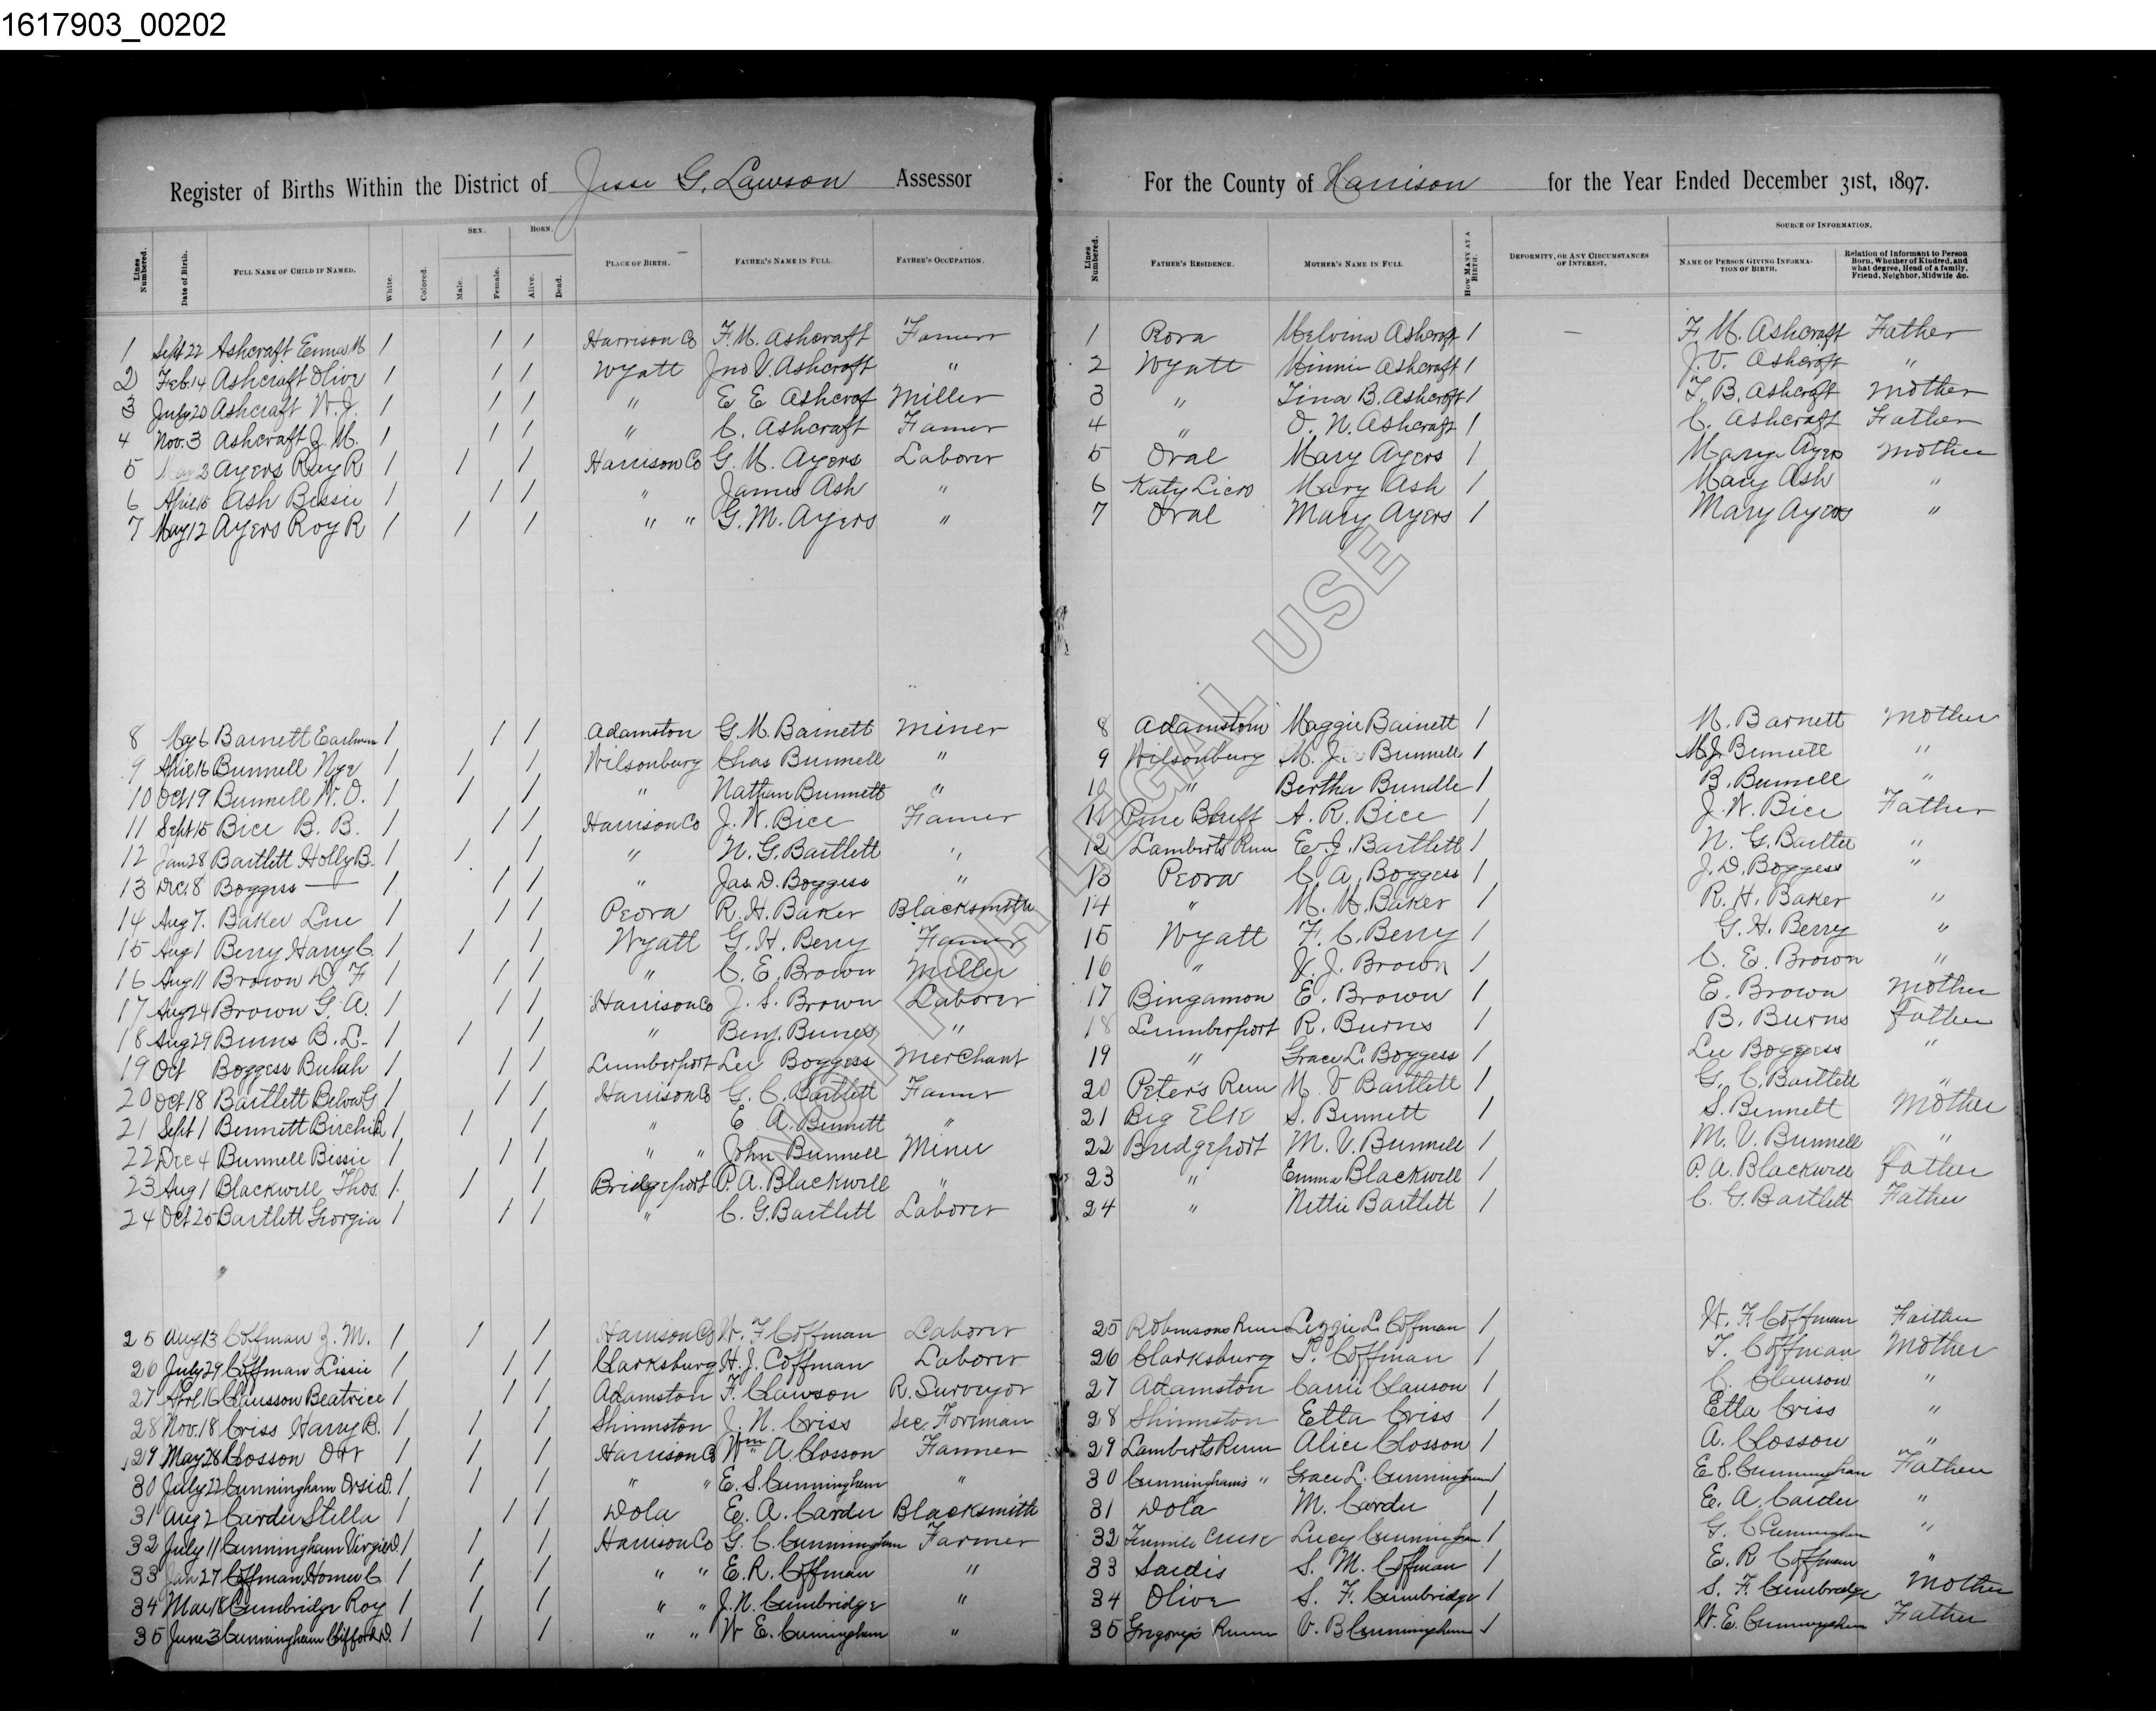 1617903_00202
Register of Births Within the District of Jesse G. Lawson Assessor
For the County of Harrison for the Year Ended December 31st, 1897.
Lines Numbered. Date of Birth. FULL NAME OF CHILD IF NAMED. White. Colored. SEX. Male. Female. BORN. Alive. Dead. PLACE OF BIRTH. FATHER'S NAME IN FULL. FATHER'S OCCUPATION.
Lines Numbered. FATHER'S RESIDENCE. MOTHER'S NAME IN FULL HOW MANY AT A BIRTH. DEFORMITY, OR ANY CIRCUMSTANCES OF INTEREST. SOURCE OF INFORMATION. NAME OF PERSON GIVING INFORMATION OF BIRTH. Relation of Informant to Person Born, Whether of Kindred, and what degree, Head of a family, Friend, Neighbor, Midwife &c.
1 Sept 22 Ashcraft Emma M 1 1 1 Harrison Co F. M. Ashcraft Farmer 1 Rora Melvina Ashcraft 1 — F. M. Ashcraft Father
2 Feb. 14 Ashcraft Olive 1 1 1 Wyatt Jno V. Ashcraft " 2 Wyatt Minnie Ashcraft 1 J. V. Ashcroft "
3 July 20 Ashcraft W. J. 1 1 1 " E E Ashcrof Miller 3 " Tina B. Ashcroft 1 T. B. Ashcraft Mother
4 Nov. 3 Ashcraft J. M. 1 1 1 " C. Ashcraft Farmer 4 " O. N. Ashcraft 1 C. Ashcraft Father
5 Ayers Ray R 1 1 1 Harrison Co G. M. Ayers Laborer 5 Oral Mary Ayers 1 Mary Ayers Mother
6 April 15 Ash Bessie 1 1 1 " James Ash " 6 Katy Lick Mary Ash 1 Mary Ash "
7 May 12 Ayers Roy R 1 1 1 " " G. M. Ayers " 7 Oral Mary Ayers 1 Mary Ayers "
8 May 6 Barnett 1 1 1 Adamston G. M. Barnett Miner 8 Adamston Maggie Barnett 1 M. Barnett Mother
9 April 16 Bunnell Nye 1 1 1 Wilsonburg Chas Bunnell " 9 Wilsonburg M. J. Bunnell 1 M. J. Bunnell "
10 Oct 19 Bunnell W. O. 1 1 1 " Nathan Bunnett " 10 " Bertha Bundle 1 B. Bunnell "
11 Sept 15 Bice B. B. 1 1 1 Harrison Co J. W. Bice Farmer 11 Pine Bluff A. R. Bice 1 J. W. Bice Father
12 Jan 28 Bartlett Holly B. 1 1 1 " N. G. Bartlett " 12 Lamberts Run E. J. Bartlett 1 N. G. Bartlett "
13 Dec. 8 Boggess — 1 1 1 " Jas. D. Boggess " 13 Peora C A. Boggess 1 J. D. Boggess "
14 Aug 7. Baker Lue 1 1 1 Peora R. H. Baker Blacksmith 14 " M. M. Baker 1 R. H. Baker "
15 Aug 1 Berry Harry C. 1 1 1 Wyatt G. H. Berry Farmer 15 Wyatt F. C. Berry 1 G. H. Berry "
16 Aug 11 Brown D. F 1 1 1 " C. E. Brown Miller 16 " V. J. Brown 1 C. E. Brown "
17 Aug 24 Brown G. A. 1 1 1 Harrison Co J. S. Brown Laborer 17 Bingamon E. Brown 1 E. Brown Mother
18 Aug 29 Burns B. L. 1 1 1 " Benj. Burns " 18 Lumberport R. Burns 1 B. Burns Father
19 Oct Boggess Bulah 1 1 1 Lumberport Lee Boggess Merchant 19 " Grace L. Boggess 1 Lee Boggess "
20 Oct 18 Bartlett Belva G 1 1 1 Harrison Co G. C. Bartlett Farmer 20 Peter's Run M. V Bartlett 1 G. C. Bartlett "
21 Sept 1 Bennett Birchie R 1 1 1 " E A. Bennett " 21 Big Elk S. Bennett 1 S. Bennett Mother
22 Dec 4 Bunnell Bessie 1 1 1 " " John Bunnell Miner 22 Bridgeport M. V. Bunnell 1 M. V. Bunnell "
23 Aug 1 Blackwell Thos. 1 1 1 Bridgeport P. A. Blackwell " 23 " Emma Blackwell 1 P. A. Blackwell Father
24 Oct 25 Bartlett Georgia 1 1 1 " C. G. Bartlett Laborer 24 " Nettie Bartlett 1 C. G. Bartlett Father
25 Aug 13 Coffman J. M. 1 1 1 Harrison Co W. F. Coffman Laborer 25 Robinsons Run Lizzie L. Coffman 1 W. F. Coffman Father
26 July 29 Coffman Lissie 1 1 1 Clarksburg H. J. Coffman Laborer 26 Clarksburg T. Coffman 1 T. Coffman Mother
27 Aprl 16 Clausson Beatrice 1 1 1 Adamston F. Clawson R. Surveyor 27 Adamston Carrie Clauson 1 C. Clauson "
28 Nov. 18 Criss Harry B. 1 1 1 Shinnston J. N. Criss Sec. Forman 28 Shinnston Etta Criss 1 Etta Criss "
29 May 28 Closson Orr 1 1 1 Harrison Co Wm A. Closson Farmer 29 Lamberts Run Alice Closson 1 A. Closson "
30 July 22 Cunningham Orsie D. 1 1 1 " " E. S. Cunningham " 30 Cunningham's " Grace L. Cunningham 1 E. S. Cunningham Father
31 Aug 2 Carder Stella 1 1 1 Dola E. A. Carder Blacksmith 31 Dola M. Carder 1 E. A. Carder "
32 July 11 Cunningham Virgie D. 1 1 1 Harrison Co G. C. Cunningham Farmer 32 Tenmile Creek Lucy Cunningham 1 G. C Cunningham "
33 Jan 27 Coffman Homer C 1 1 1 " " E. R. Coffman " 33 Sardis S. M. Coffman 1 E. R Coffman "
34 Mar 18 Cumbridge Roy 1 1 1 " " J. N. Cumbridge " 34 Olive S. F. Cumbridge 1 S. F. Cumbridge Mother
35 June 3 Cunningham Clifford D. 1 1 1 " " W E. Cuningham " 35 Gregory's Runn V. B Cunningham 1 W. E. Cunningham Father
NOT FOR LEGAL USE